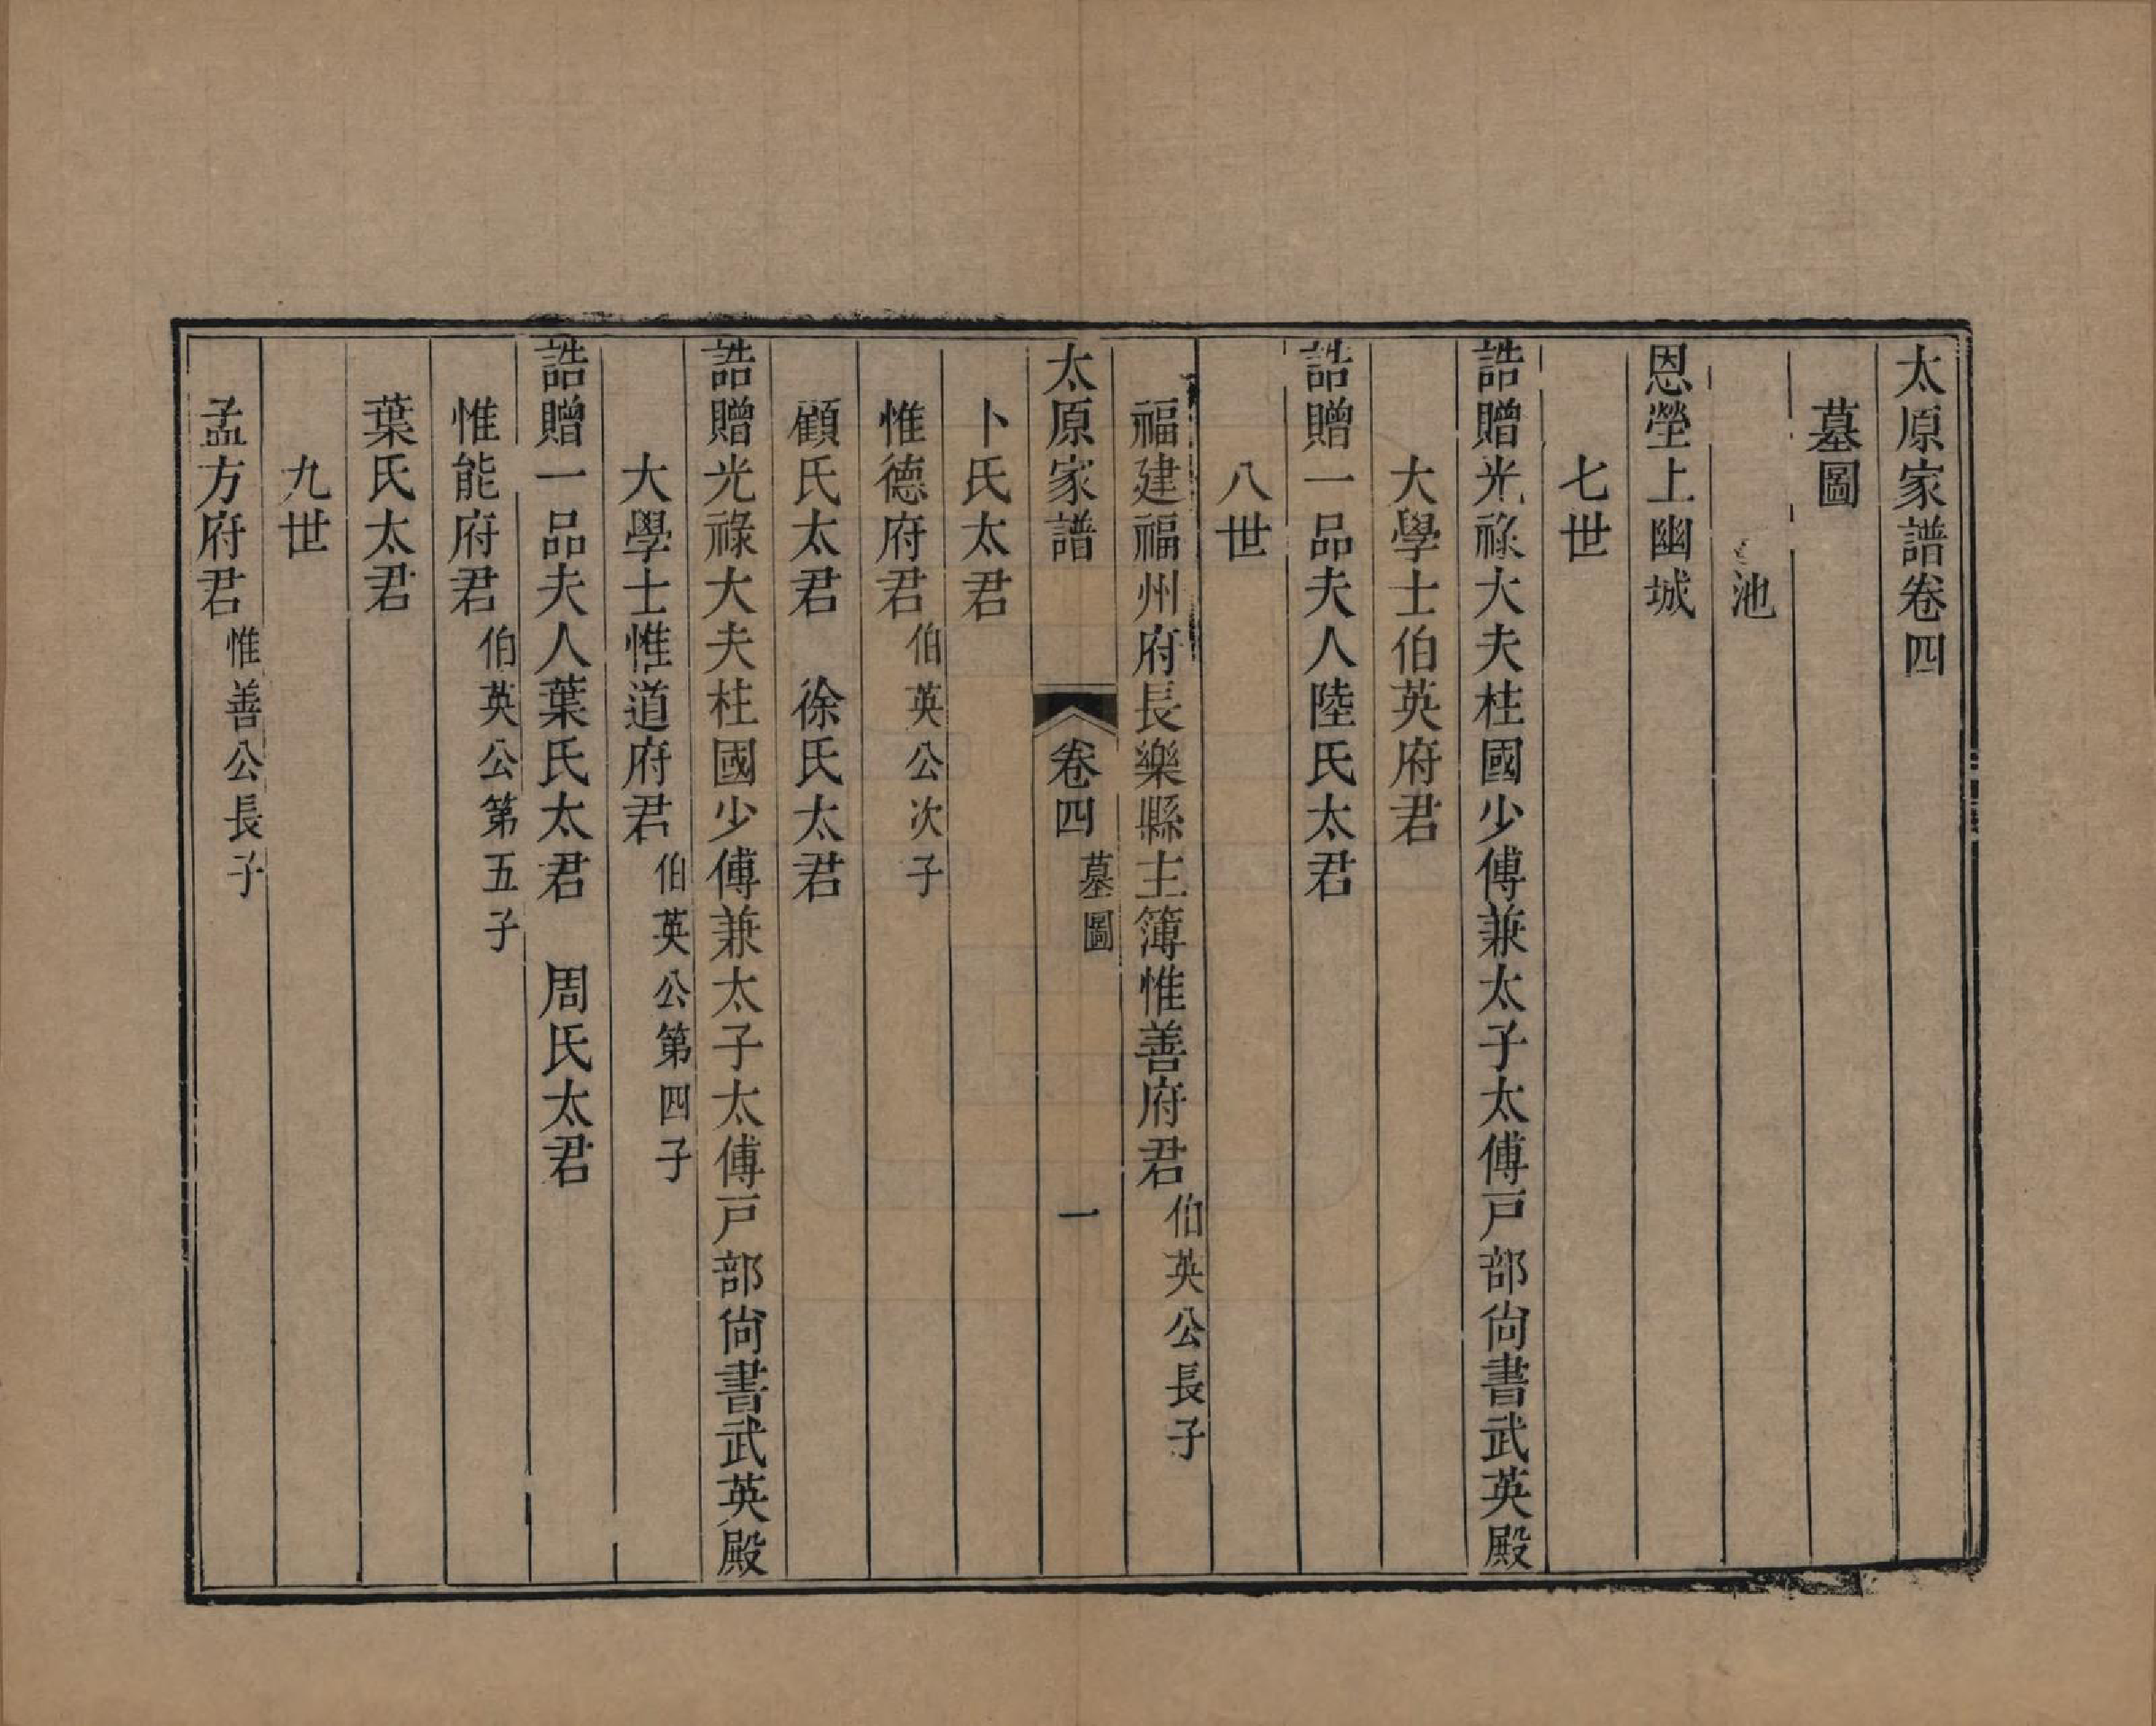 太原家譜卷四
墓圖
池
恩塋上幽城
七世
誥贈光祿大夫柱國少傅兼太子太傅戸部尙書武英殿
大學士伯英府君
誥贈一品夫人陸氏太君
八世
福建福州府長樂縣主簿惟善府君伯英公長子
太原家譜 卷四 墓圖 一
卜氏太君
惟德府君伯英公次子
顧氏太君 徐氏太君
誥贈光祿大夫柱國少傅兼太子太傅戸部尙書武英殿
大學士惟道府君伯英公第四子
誥贈一品夫人葉氏太君 周氏太君
惟能府君伯英公第五子
葉氏太君
九世
孟方府君惟善公長子